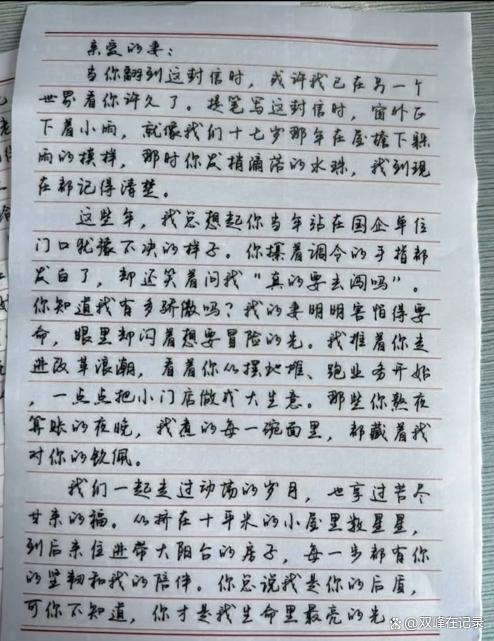 亲爱的妻：
当你翻到这封信时，或许我已在另一个
世界看你许久了。提笔写这封信时，窗外正
下着小雨，就像我们十七岁那年在屋檐下躲
雨的模样，那时你发梢滴落的水珠，我到现
在都记得清楚。
这些年，我总想起你当年站在国企单位
门口犹豫不决的样子。你攥着调令的手指都
发白了，却还笑着问我“真的要去闯吗”。
你知道我有多骄傲吗？我的妻明明害怕得要
命，眼里却闪着想要冒险的光。我推着你走
进改革浪潮，看着你从摆地摊、跑业务开始
，一点点把小门店做成大生意。那些你熬夜
算账的夜晚，我煮的每一碗面里，都藏着我
对你的钦佩。
我们一起走过动荡的岁月，也享过苦尽
甘来的福。从挤在十平米的小屋里数星星，
到后来住进带大阳台的房子，每一步都有你
的坚韧和我的陪伴。你总说我是你的后盾，
可你不知道，你才是我生命里最亮的光
@双峰在记录